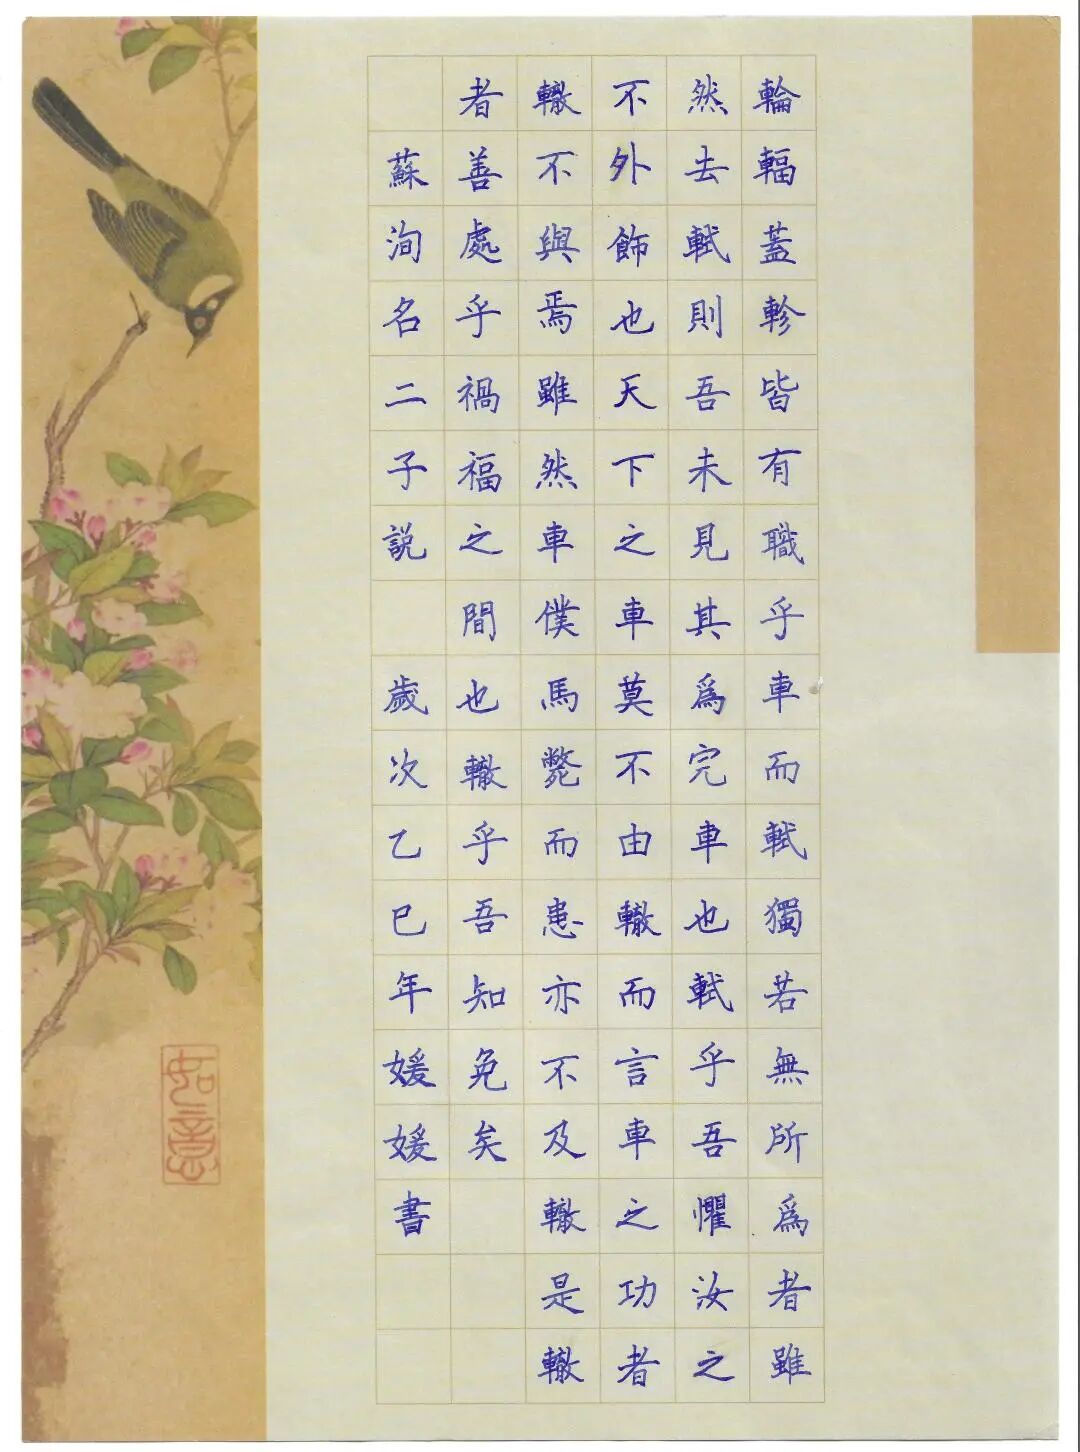 輪輻蓋軫皆有職乎車而軾獨若無所爲者雖
然去軾則吾未見其爲完車也軾乎吾懼汝之
不外飾也天下之車莫不由轍而言車之功者
轍不與焉雖然車僕馬斃而患亦不及轍是轍
者善處乎禍福之間也轍乎吾知免矣
蘇洵名二子説 歲次乙巳年媛媛書
如意